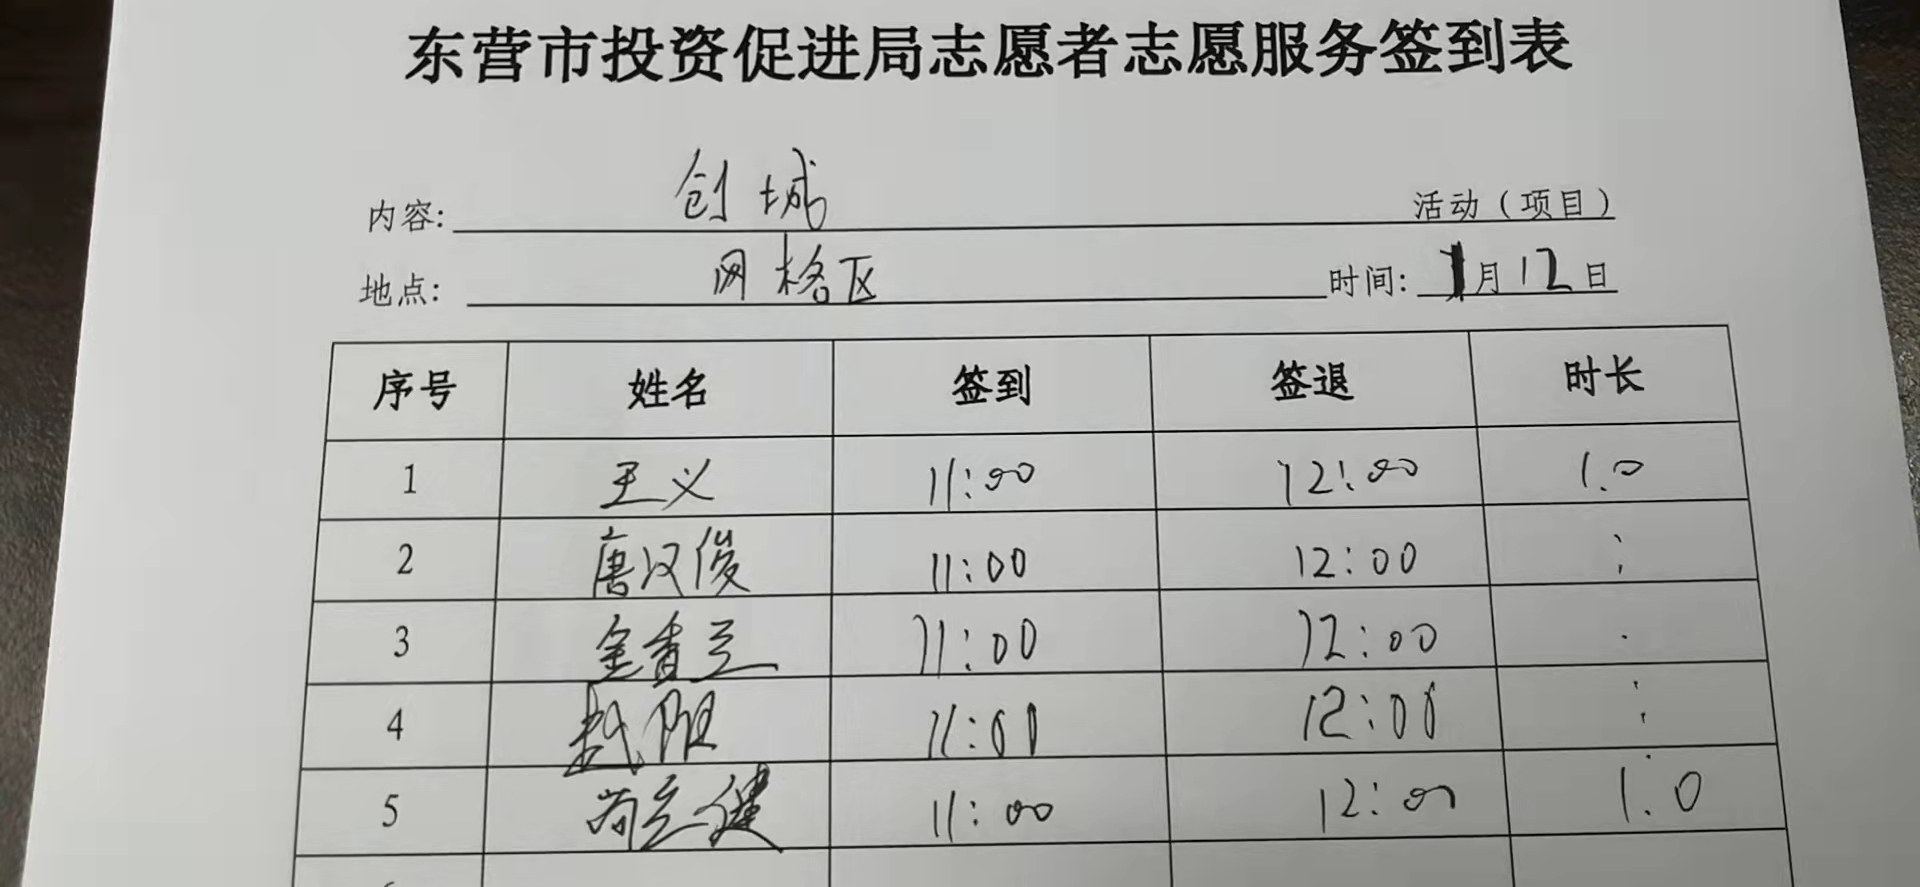 东营市投资促进局志愿者志愿服务签到表
内容: 创城 活动（项目）
地点: 网格区 时间: 1月12日
序号 姓名 签到 签退 时长
1 王义 11:00 12:00 1.0
2 唐汉俊 11:00 12:00 :
3 金香兰 11:00 12:00 .
4 赵阳 11:00 12:00 :
5 尚立健 11:00 12:00 1.0